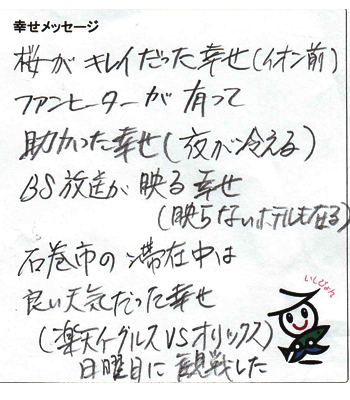 幸せメッセージ
桜が キレイだった幸せ(イオン前)
ファンヒーターが 有って
助かった幸せ(夜が冷える)
BS放送が 映る 幸せ
(映らないホテルも在る)
石巻市の 滞在中は
良い天気だった幸せ
(楽天イーグルスVSオリックス)
日曜日に 観戦した
いしぴょん